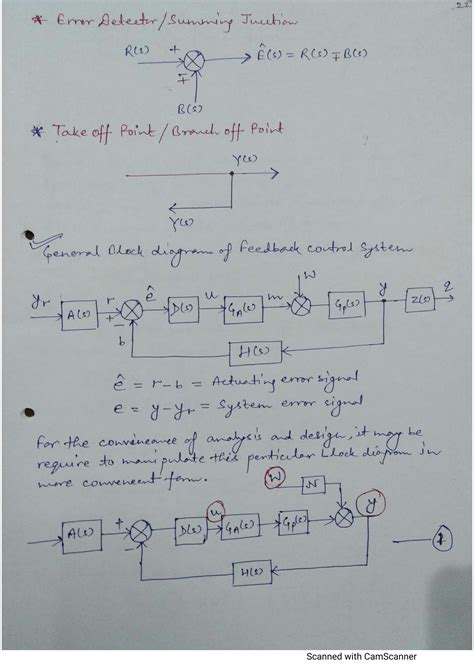 22
* Error Detector/Summing Juction
R(s) + Ê(s) = R(s) ∓ B(s)
∓
B(s)
* Take off Point / Branch off Point
Y(s)
Y(s)
General Block diagram of Feedback control System
W
yr A(s) r + ê D(s) u GA(s) m Gp(s) y Z(s) q
−
b
H(s)
ê = r-b = Actuating error signal
e = y-yr = System error signal
For the conveneance of analysis and design, it may be
require to manipulate this perticular block diagram in
more conveneent form.
W N
A(s) + D(s) u GA(s) Gp(s) y
−
H(s)
Scanned with CamScanner